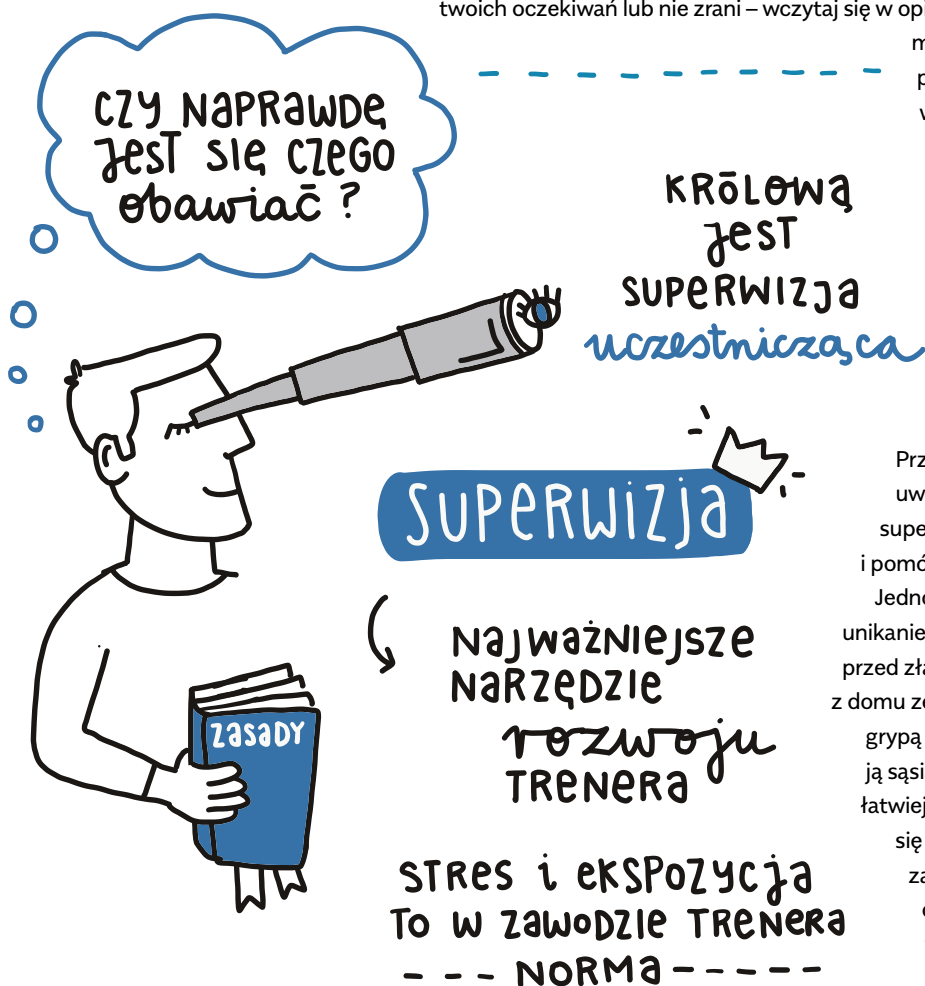 twoich oczekiwań lub nie zrani – wczytaj się w
CZY NAPRAWDĘ
JEST SIĘ CZEGO
obawiać ?
KRÓLOWĄ
JEST
SUPERWIZJA
uczestnicząca
SUPERWIZJA
NAJWAŻNIEJSZE
NARZĘDZIE
rozwoju
TRENERA
ZASADY
STRES i EKSPOZYCJA
TO W ZAWODZIE TRENERA
--- NORMA -----
i
Jedno
unikanie
przed
z domu
grypą
ją
łatwiej
się